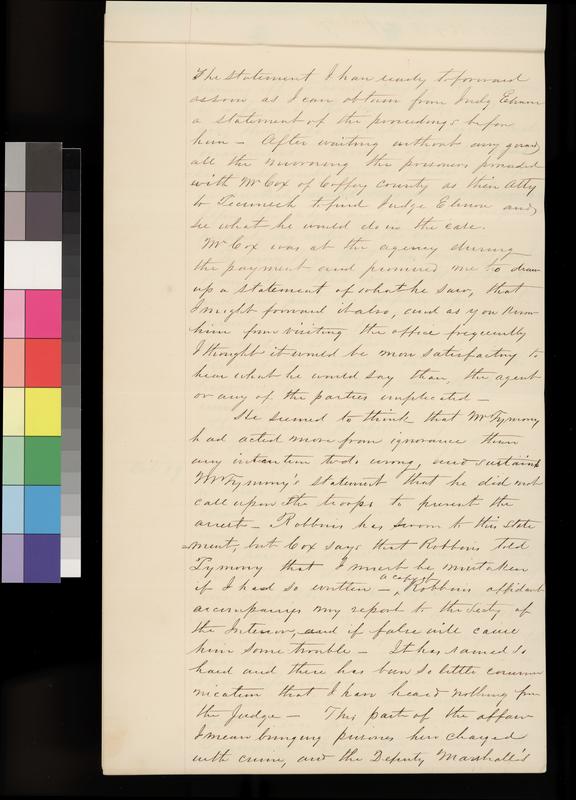 The statement I have ready to forward
as soon as I can obtain from Judge Elmore
a statement of the proceedings before
him - After waiting without any guard,
all the morning the prisoners proceeded
with Mr Cox of Coffey County as their Atty
to Tecumseh to find Judge Elmore and
see what he would do in the case.
Mr Cox was at the agency during
the payment and promised me to draw
up a statement of what he saw, that
I might forward it also, and as you know
him from visiting the office frequently
I thought it would be more satisfactory to
hear what he would say than, the agent
or any of the parties implicated -
He seemed to think that Mr Tymony
had acted more from ignorance than
any intention to do wrong, and sustains
Mr Tymony's statement that he did not
call upon the troops to prevent the
arrest - Robbins has sworn to this state
=ment, but Cox says that Robbins told
Tymony that I must be mistaken
if I had so written - a copy of Robbins affidavit
accompanys my report to the Secty of
the Interior, and if false will cause
him some trouble - It has rained so
hard and there has been so little commu
nication that I have heard nothing from
the Judge - This part of the affair
I mean bringing prisoners here charged
with crime, and the Deputy Marshall's